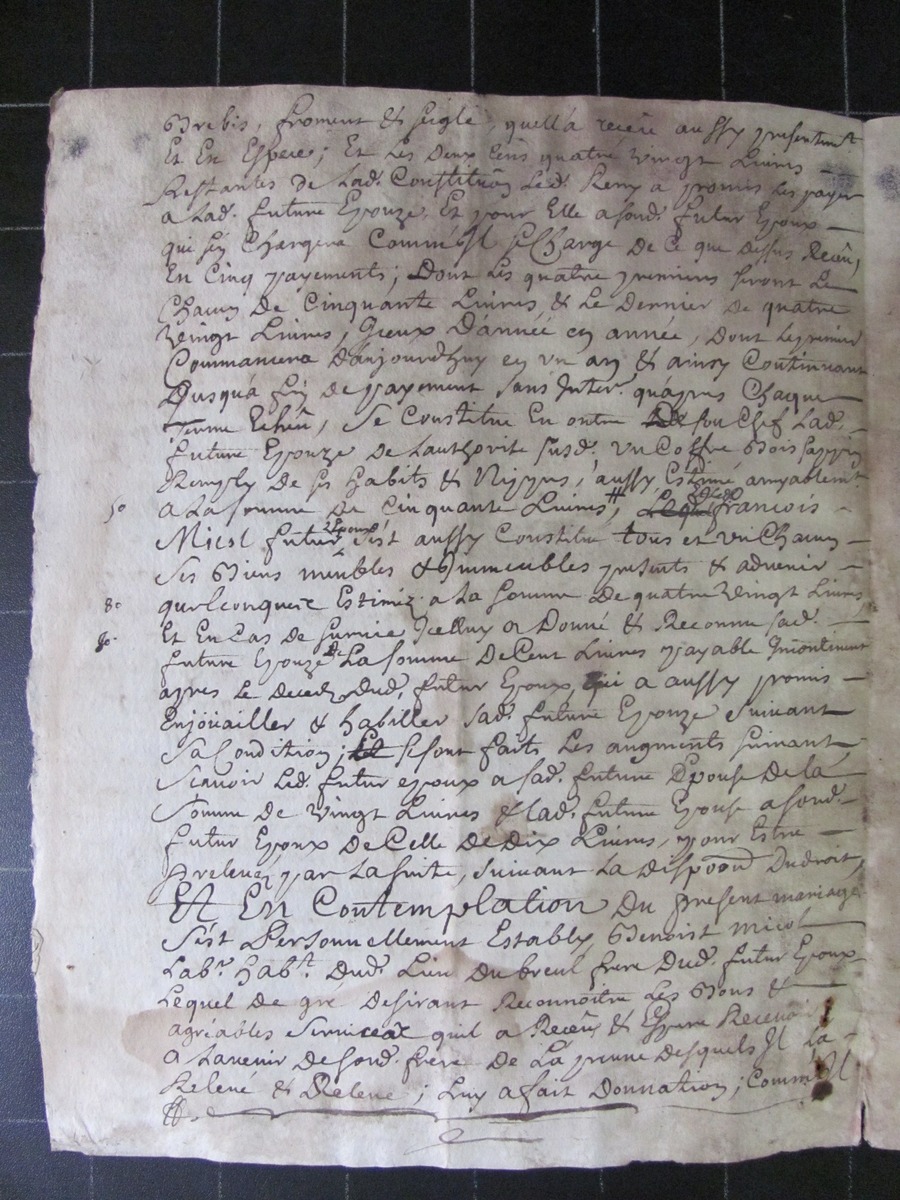 Brebis, froment & seigle, quell'a receu aussy presentemt
Et En Espece; Et Les Deux Cens quatre Vingt Livres
Restantes de Lad. Constitu͠on Led. Remy a promis Les payer
a Lad. future Epouze, Et pour Elle a sond. futur Epoux
qui s'en Chargera Comm'il se Charge De Ce que Dessus Receu,
En Cinq payements; Dont Les quatre premiers seront De
Chacun De Cinquante Livres & Le Dernier de quatre
Vingt Livres, Iceux D'année en année, Dont Le premier
Commancera D'aujourdhuy en vn an & ainsy Continuant
Jusqu'a fin de payement sans Inter. qu'apres Chaque
Terme Echeu, Se Constitue En outre de son Chef Lad.
future Epouze de Lauthorité susd. vn Coffre Bois sappin
Remply De ses habits & Nippes, aussy Estimé amyablemt.
50 a La somme De Cinquante Livres, # Led. francois
Micol futur Epoux s'est aussy Constitué tous et vn Chacun
Ses Biens meubles & Immeubles presents & advenir
80 quelconques Estimez a La somme De quatre Vingt Livres,
Et En Cas De survie Icelluy a Donné & Reconnu sad.
future Epouze De La somme De Cent Livres payable Incontinent
apres Le Decedz Dud. futur Epoux, qui a aussy promis
Enjoüailler & habiller sad. future Epouze suivant
sa Condition; se sont faits Les augments suivant,
Scauoir Led. futur epoux a sad. future Epouse De la
Somme De Vingt Livres & lad. future Epouse a sond.
futur Epoux De Celle De Dix Livres, pour Estre
Prelevez par La suite, suivant La Dispo͠on Du droit,
Et En Contemplation Du present mariage
S'est Personnellement Estably Benoist Micol
Labr. habt. Dud. Lieu Du breul frere Dud. futur Epoux
Lequel de gré Desirant Reconnoitre Les Bons &
agréables services qu'il a Receus & Espere Recevoir
a Lavenir De sond. frere De La preuve Desquels Il La
Relevé & Releve; Luy a fait Donnation, Comm'Il